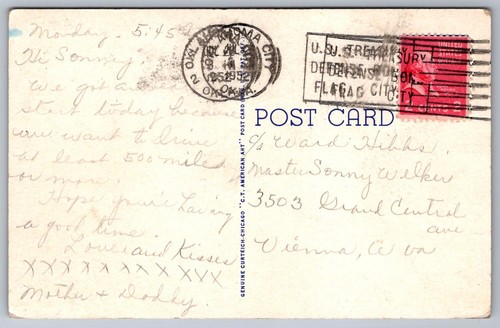 Monday. 5:45
Hi Sonney.
We got a
start today because
we want to drive
at least 500 miles
or more.
Hope you're having
a good time.
Love and Kisses
XXXXXXXXXX
Mother & Daddy.
OKLAHOMA CITY
2
1952
OKLA.
U.S. TREASURY
DEFENSE BON
FLAG CITY
UNITED STATES
POST CARD
c/o Ward Hibbs.
Master Sonny Welker
3503 Grand Central
ave
Vienna, W va
GENUINE CURTEICH-CHICAGO "C.T. AMERICAN ART" POST CARD